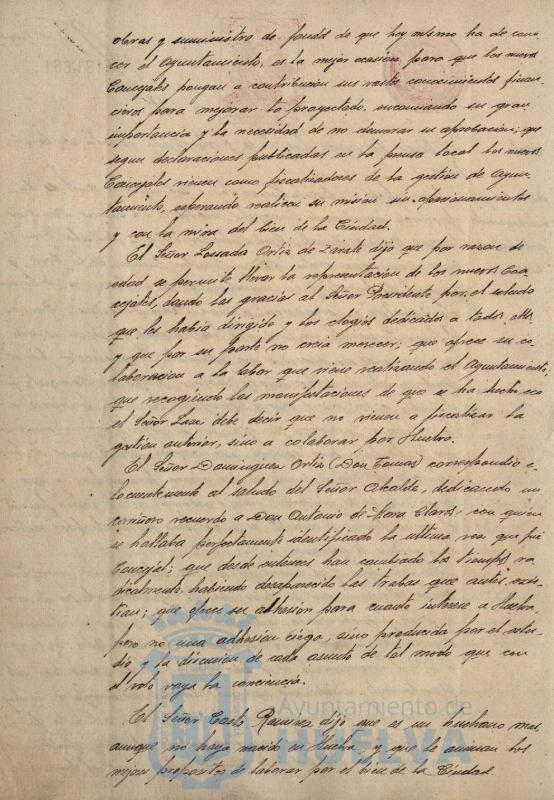 obras y suministro de fondos de que hoy mismo ha de cono-
cer el Ayuntamiento, es la mejor ocasión para que los nuevos
Concejales pongan a contribución sus vastos conocimientos finan-
cieros para mejorar lo proyectado, enunciando su gran
importancia y la necesidad de no demorar su aprobación; que
segun declaraciones publicadas en la prensa local los nuevos
Concejales vienen como fiscalizadores de la gestión de Ayun-
tamiento, esperando realicen su misión sin apasionamientos
y con la mira del bien de la Ciudad.
El Señor Lossada Ortiz de Zárate dijo que por razon de
edad se permite llevar la representación de los nuevos Con-
cejales, dando las gracias al Señor Presidente por el saludo
que les habia dirigido y los elogios dedicados a todos ellos
y que por su parte no creia merecer; que ofrece su co-
laboracion a la labor que viene realizando el Ayuntamiento;
que recogiendo las manifestaciones de que se ha hecho eco
el Señor debe decir que no vienen a fiscalizar la
gestión anterior, sino a colaborar por Huelva.
El Señor Dominguez Ortiz (Don Tomas) correspondió e-
locuentemente al saludo del Señor Alcalde, dedicando un
cariñoso recuerdo a Don Antonio de Mora Claros con quien
se hallaba perfectamente identificado la ultima vez que fué
Concejal; que desde entonces han cambiado los tiempos ra-
dicalmente, habiendo desaparecido las trabas que antes exis-
tian; que ofrece su adhesión para cuanto interese a Huelva,
pero no una adhesión ciega, sino producida por el estu-
dio y la discusion de cada asunto de tal modo que con
el voto vaya la conciencia.
El Señor Ramirez dijo que es un huelvano mas,
aunque no haya nacido en Huelva, y que le animan los
mejores propositos de laborar por el bien de la Ciudad.
Ayuntamiento de
HUELVA